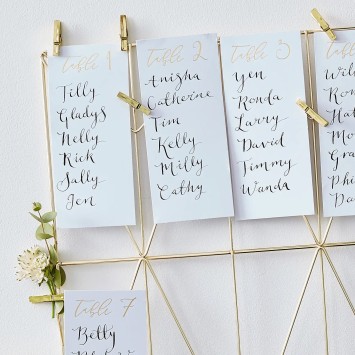 table 1
Tilly
Gladys
Nelly
Rick
Sally
Jen
table 2
Anisha
Catherine
Tim
Kelly
Milly
Cathy
table 3
Yen
Ronda
Larry
David
Timmy
Wanda
table 7
Betty